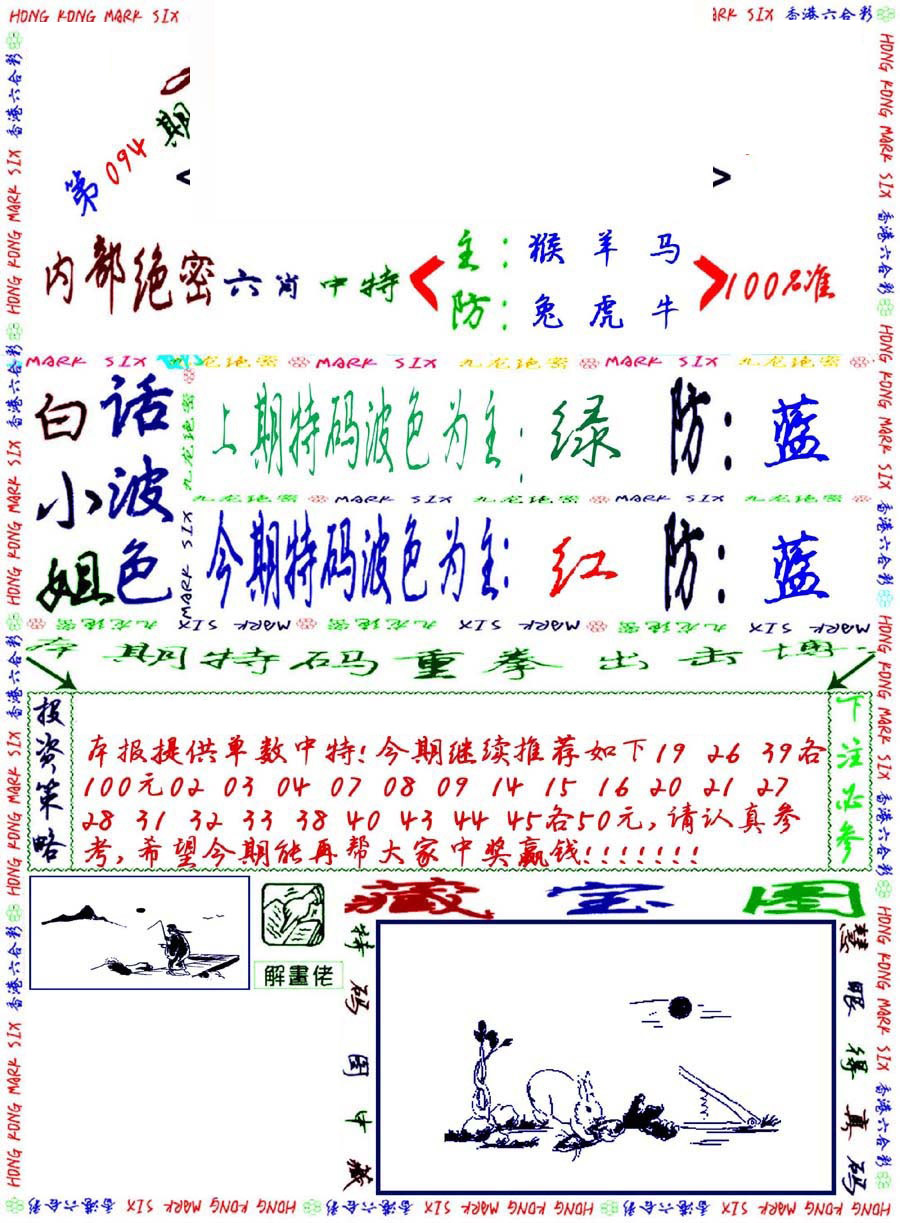 HONG KONG MARK SIX
ARK SIX 香港六合彩
第094期
< >
内部绝密六肖中特
主:猴 羊 马
防:兔 虎 牛
100%准
MARK SIX 九龙绝密 MARK SIX 九龙绝密 MARK SIX 九龙绝密
白话小波姐色
上期特码波色为主:绿 防:蓝
九龙绝密 MARK SIX 九龙绝密 MARK SIX 九龙绝密
今期特码波色为主:红 防:蓝
九龙绝密 MARK SIX 九龙绝密 SIX MARK 九龙绝密 SIX MARK
期特码重拳出击
投资策略
本报提供单数中特!今期继续推荐如下19 26 39各
100元02 03 04 07 08 09 14 15 16 20 21 27
28 31 32 33 38 40 43 44 45各50元,请认真参
考,希望今期能再帮大家中奖赢钱!!!!!!!
下注必参
解畫佬
藏宝图
特码图中藏
慧眼得真码
HONG KONG MARK SIX 香港六合彩